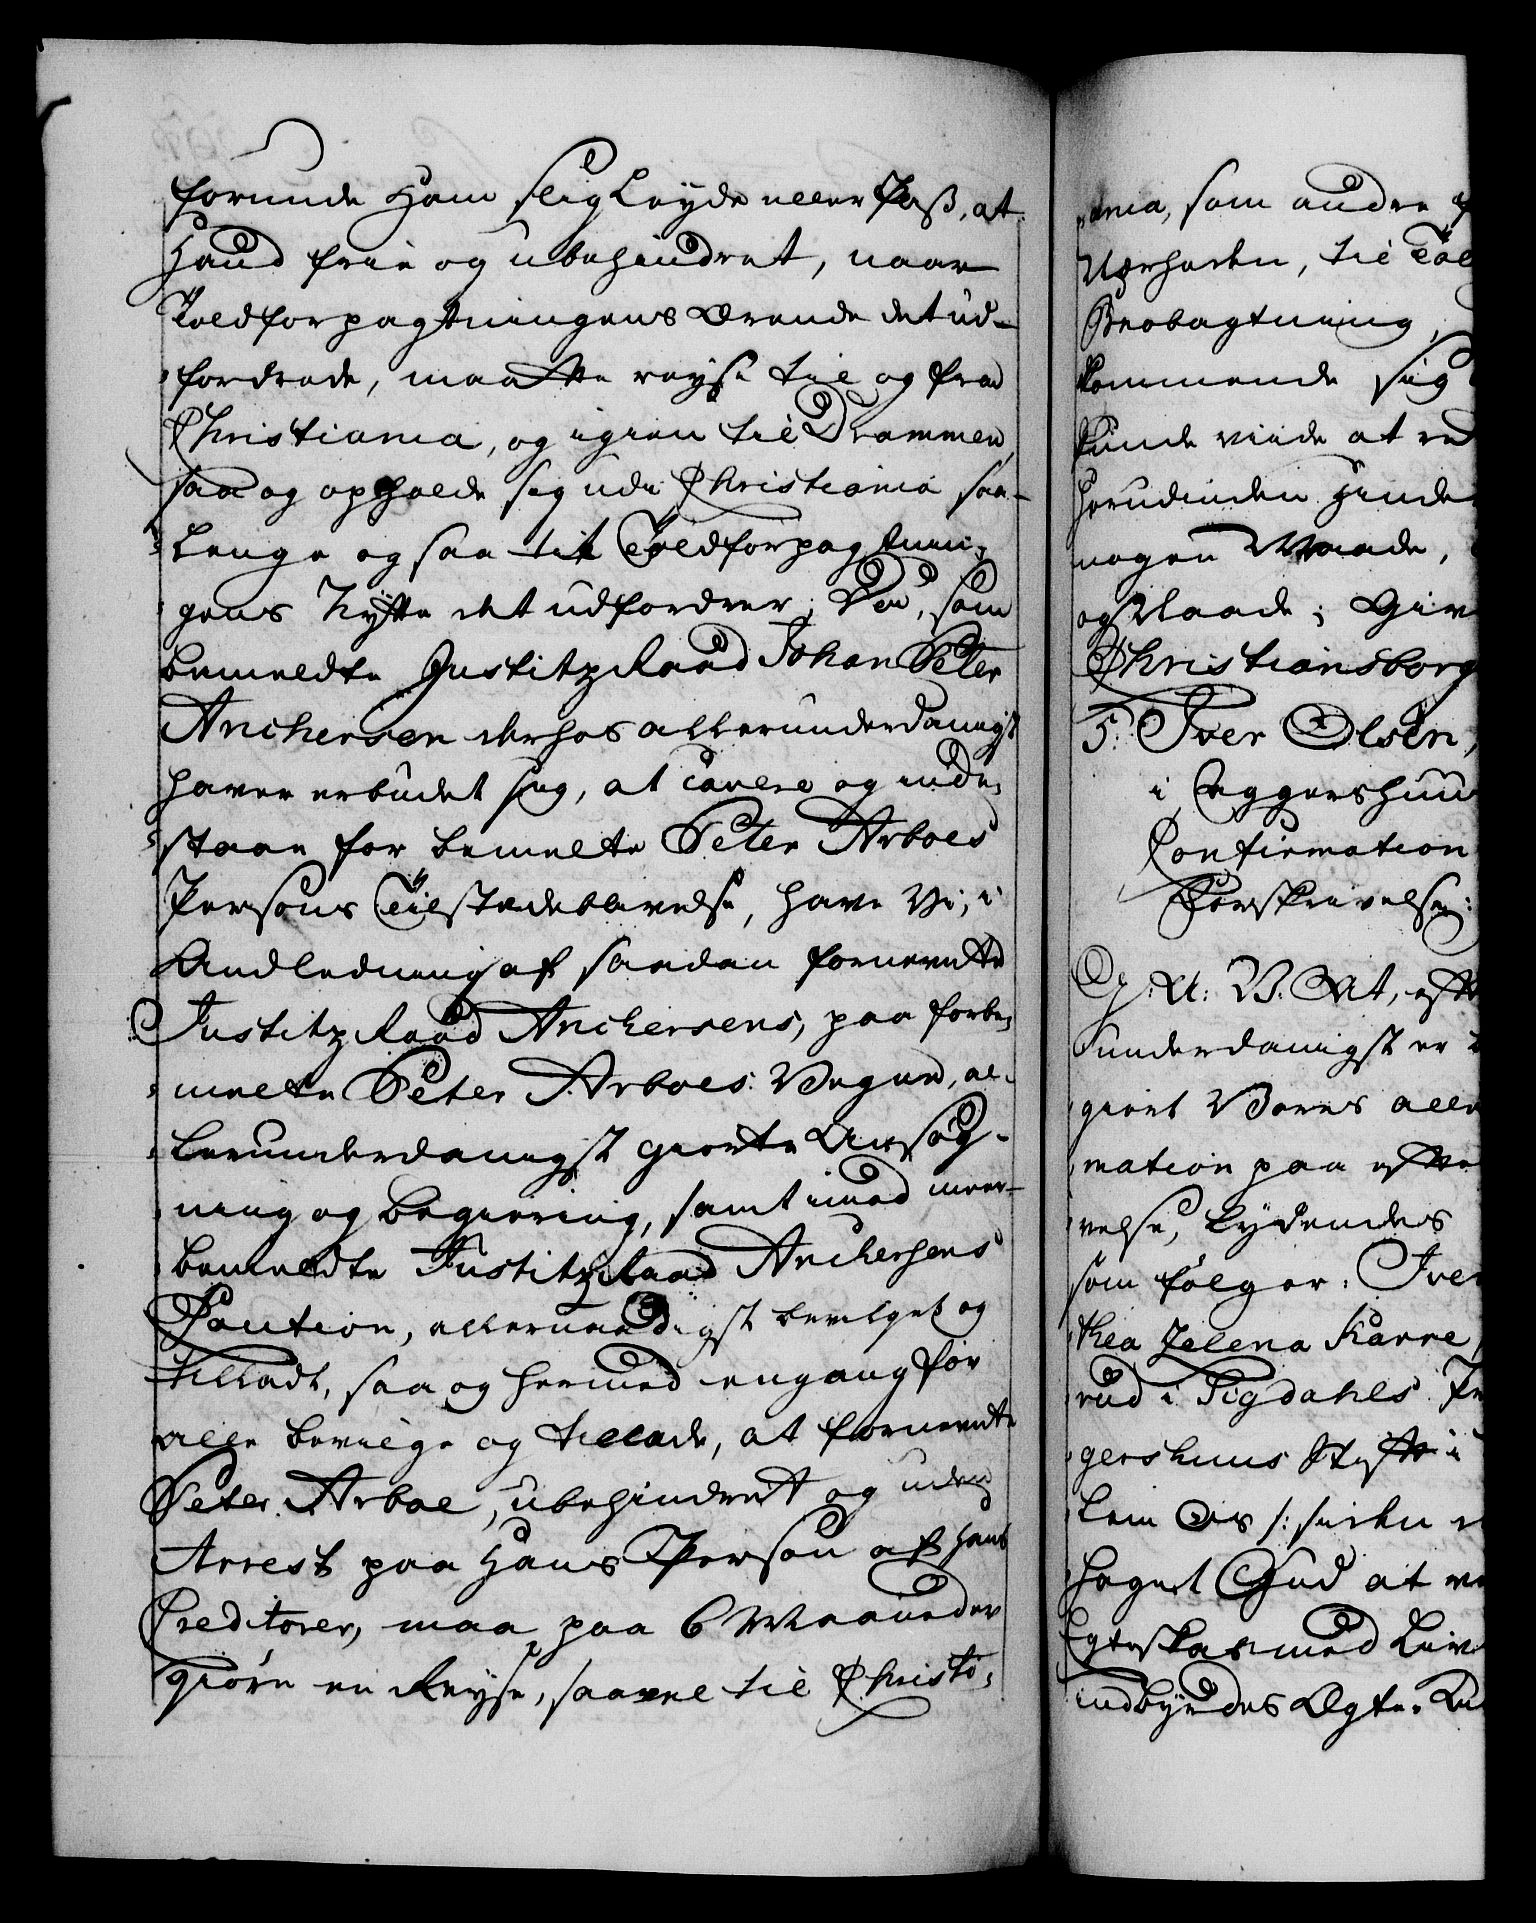 forunde Ham slig Leyde eller Pass, at
Hand frie og ubehindret, naar
Toldforpagtningens Ærende det ud-
fordrede, maatte reyse til og fra
Christiania, og igien til Drammen,
saa og opholde sig udi Christiania saa-
lenge og saa tit Toldforpagtnin-
gens Nytte det udfordrer; Da, som
bemeldte Justitz Raad Johan Peter
Anchersen derhos allerunderdanigst
haver erbudet sig, at cavere og inde-
staae for bemelte Peter Arboes
Persons Tilstædeblivelse, have Vi, i
Andledning af saadan fornevnte
Justitz Raad Anchersens, paa forbe-
melte Peter Arboes Vegne, al-
lerunderdanigst giorte Ansøg-
ning og Begiering, samt imod meer-
bemeldte Justitz Raad Anchersens
Caution, allernaadigst bevilget og
tilladt, saa og hermed engang for
alle bevilge og tillade, at fornevnte
Peter Arboe, ubehindret og uden
Arrest paa Hans Person af hans
Creditorer, maa paa 6 Maaneder
giøre en Reyse, saavel til Christi-
ania, som andre
Nærheden, til Tol
Beobagtning,
kommende sig
kunde viide at ret
Herudinden hinde
nogen Maade,
og Naade; Giv
Christiansborg
5. Iver Olsen,
i Aggershuus
Confirmation
Forskrivelse:
G. A: V. At, eft
underdanigst er b
gieret Vores alle
mation paa efte
velse, lydendes
som følger: Iver
thea Helena Karre
rud i Sigdahls Pr
gershuus Stift i
lem Os /: siden
haget Gud at
Egteskab med Liv
indbyrdes Ægte-